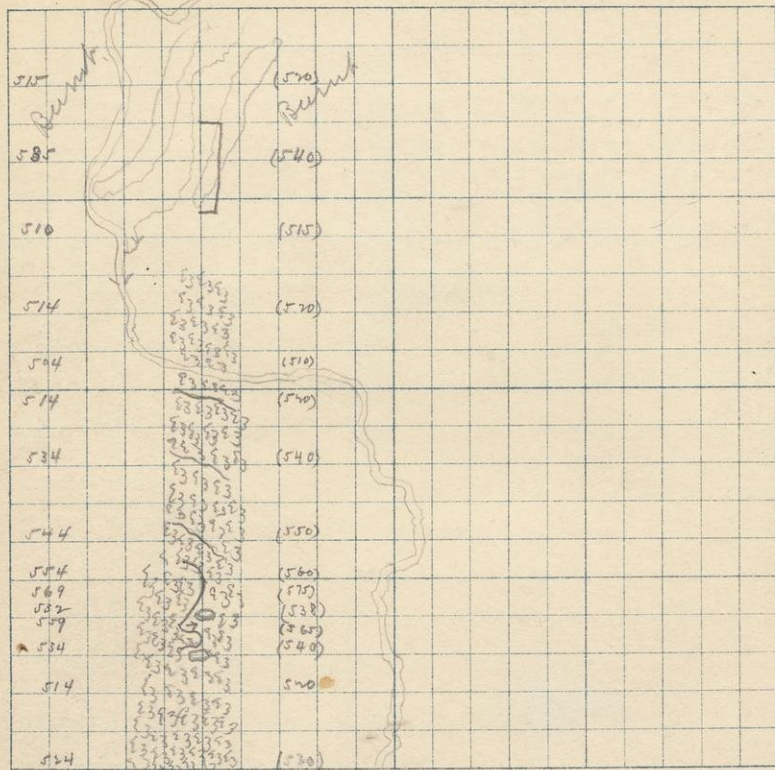 515 (520)
Burnt Burnt
585 (540)
510 (515)
514 (520)
504 (510)
514 (520)
534 (540)
544 (550)
554 (560)
569 (575)
532 (538)
559 (565)
534 (540)
514 520
524 (530)